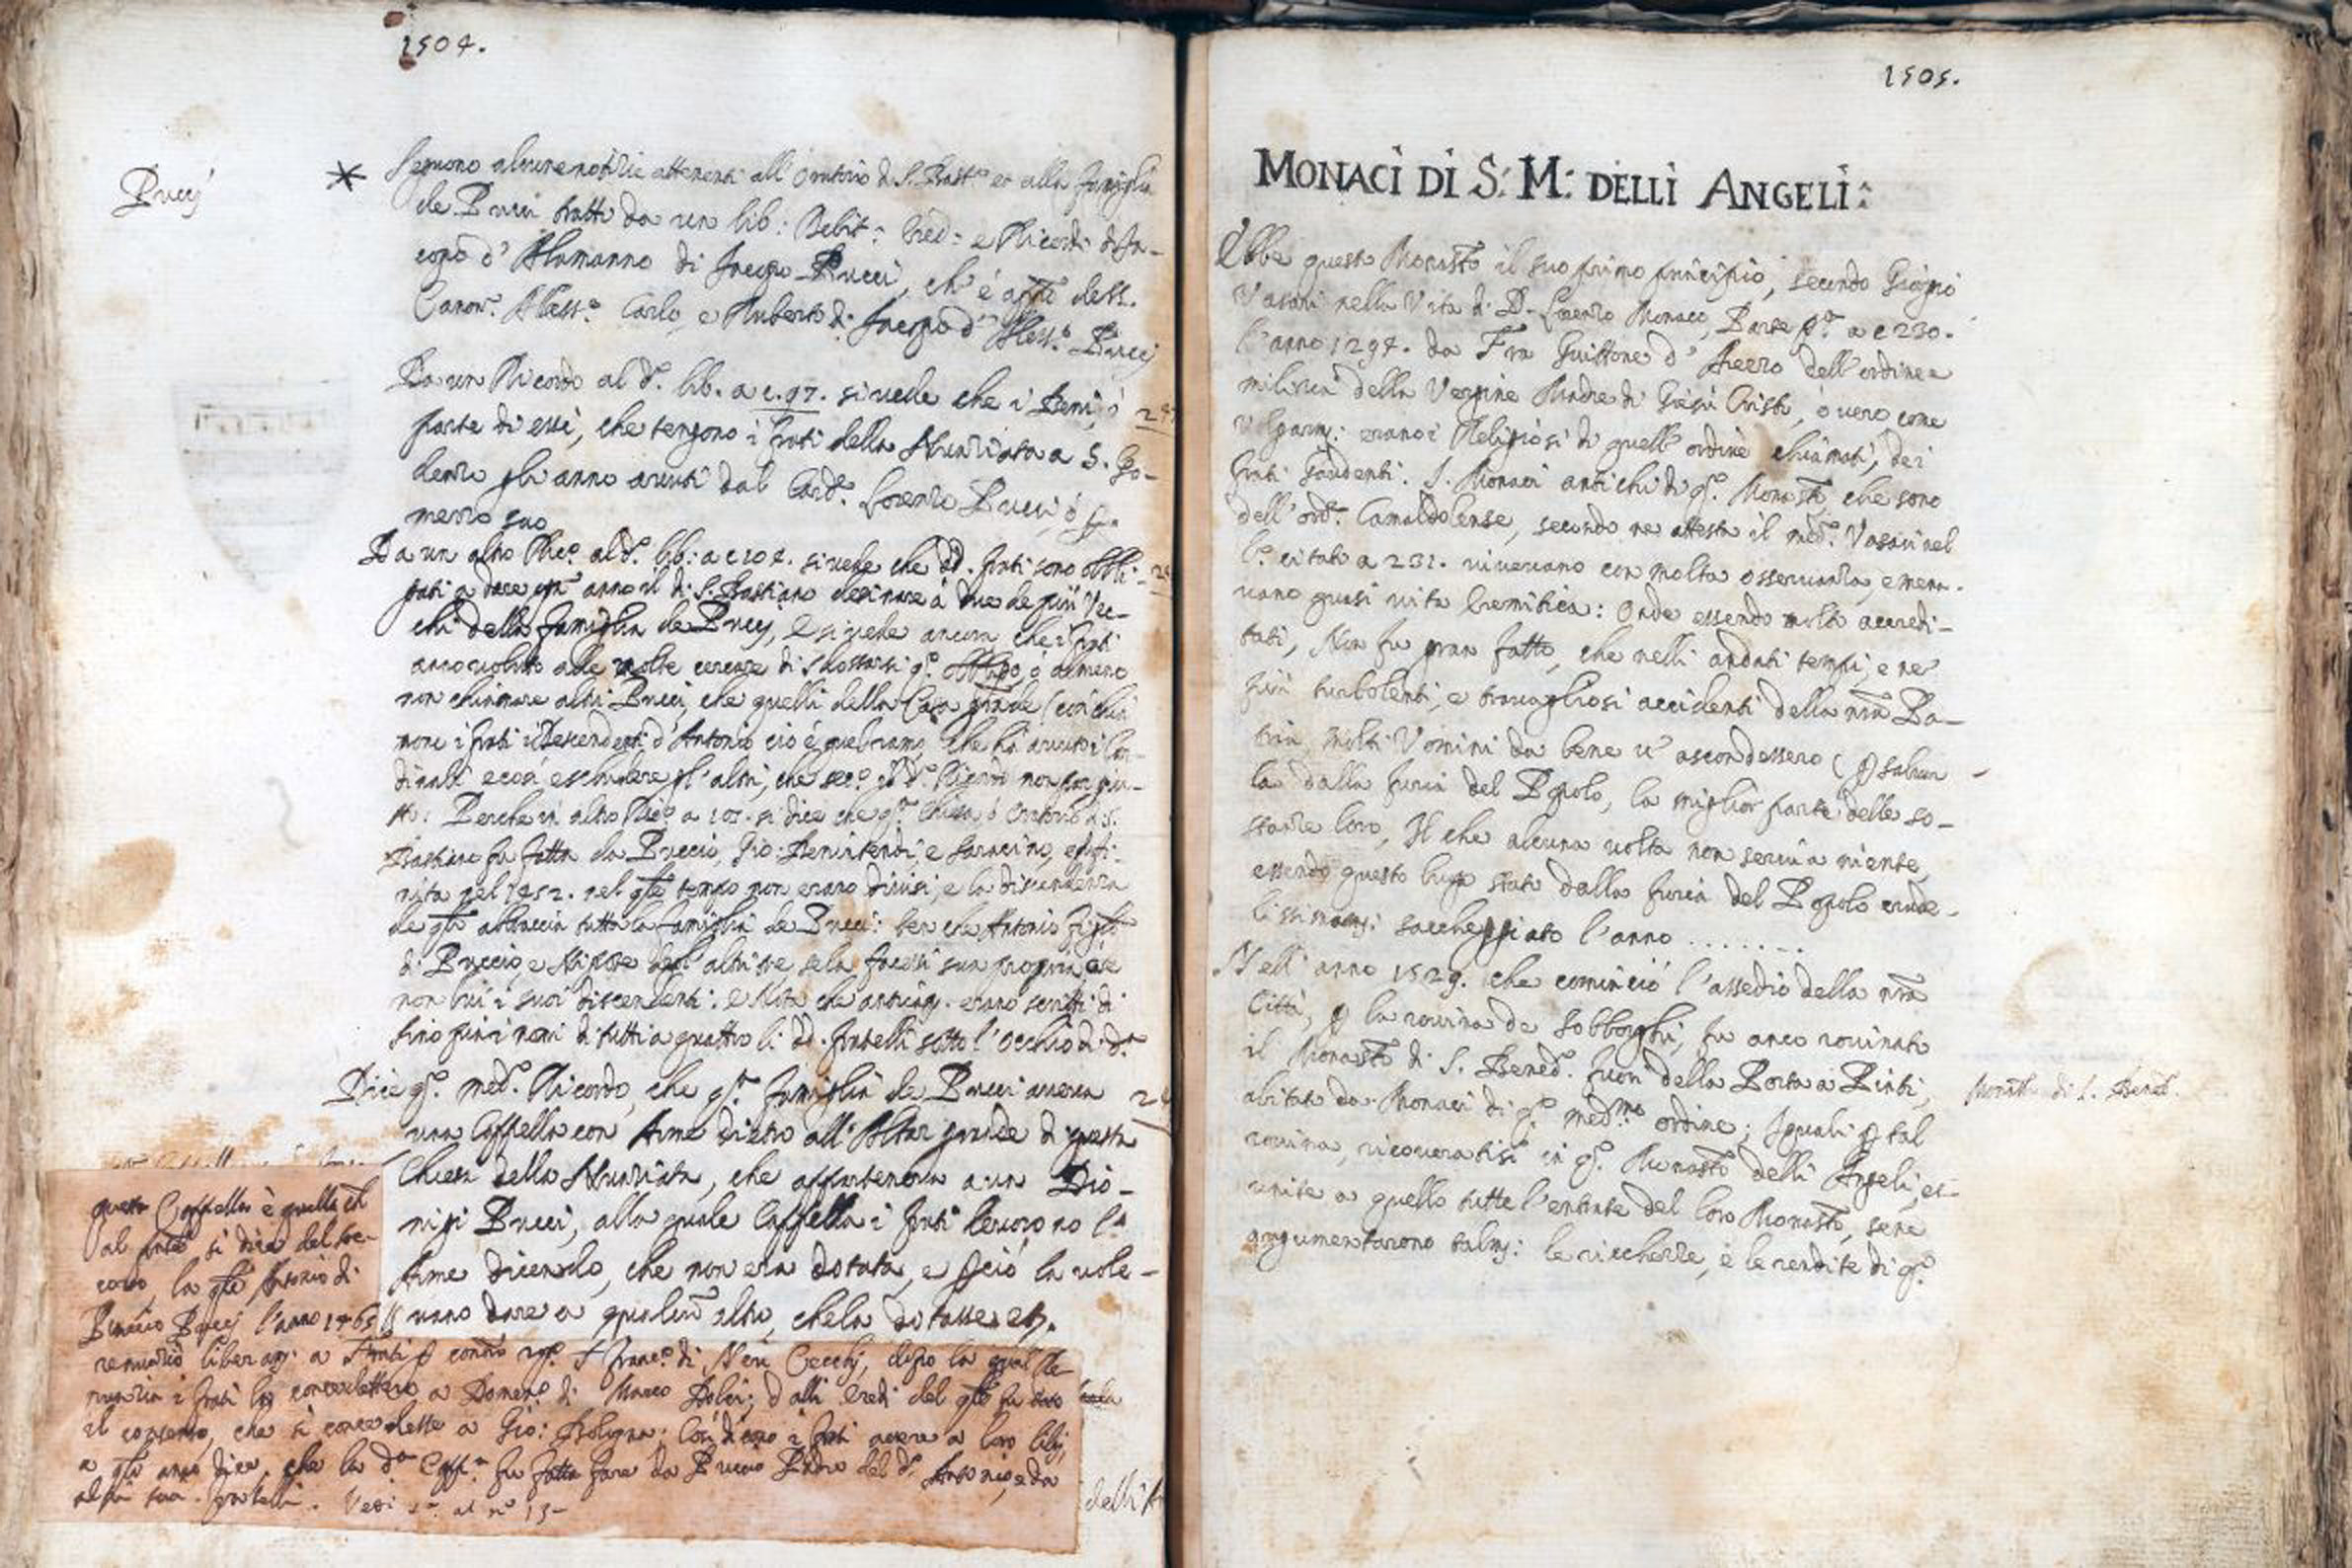 1504.
Pucci
* Seguono alcune notizie attenenti all' Oratorio di S. Bast.º et alla famiglia
de Pucci tratti da un lib: Debit: Cred: e Ricordi di Ja-
copo d' Alamanno di Jacopo Pucci, ch' è appº dell.
Canon. Aless.º Carlo, e Ruberto di Jacopo d' Aless.º Pucci
Da un Ricordo al dº. lib. a c. 97. si vede che i Beni, ó
parte di essi, che tengono i frati della Nunziata a S. Go-
denzo gli anno avuti dal Card.e Lorenzo Pucci, ó p.
mezzo suo
Da un altro Ricº. al dº. lib: a c 104. si vede che dd. frati sono obbli-
gati a dare ogn' anno il di S. Bastiano desinare à due de più Vec-
chi della famiglia de Pucci, e si vede ancora che i frati
anno voluto alle volte cercare di sbossarsi q.º obbligo, ó almeno
non chiamare altri Pucci, che quelli della Casa grande (con chia
mono i frati i Descendenti d' Antonio ciò è quel ramo, che hà avuto i Car-
dinali) e così escludere gl' altri, che sec.º il dº. Ricordo non par giu-
sto: Perche in altro Ricº a 105. si dice che qª. Chiesa, ó Oratorio di S.
Bastiano fu fatta da Puccio, Gio: Benintendi, e Saracino, e fi-
nita nel 1452. nel qle tempo non erano divisi, e la discendenza
de qli abbraccia tutta la famiglia de Pucci: ben che Antonio figlio
di Puccio e Nipote degl' altri tre se la facessi sua propria
non lui i suoi discendenti: e Nota che anticam. erano scritti di
sino più i nomi di tutti a quattro li dd. fratelli sotto l' occhio di dª.
Dice qº. medº. Ricordo, che qª. famiglia de Pucci aveva
una Cappella con Arme dietro all' Altar grande di questa
Chiesa della Nunziata, che apparteneva a un Dio-
nigi Pucci, alla quale Cappella i frati levorono l'
Arme dicendo, che non era dotata, e p ciò la vole-
vano dare a qualcun altro, che la dotasse etc.
questa Cappella è quella ch
al pnte si dice del Soc-
corso, la qle Antonio di
Puccio Pucci l'anno 1465
renunziò liberam: a Frati p contto rog. S. Franc.º di Neri Cecchi, dopo la qual Re-
nunzia i frati la concedettero a Domenº. di Marco Dolci; d' alli eredi del qle fu dato
il consenso, che si concedesse a Gio: Bologna: Così dicono i frati avere a loro libri,
a qli anno dice, che la dª Capp.ª fu fatta fare da Puccio Padre del dº. Antonio, e da
al. sua fratelli. Vedi sª. al nº 15-
delli A
1505.
MONACI DI S: M: DELLI ANGELI:
Ebbe questo Monastº il suo primo principio, secondo Giorgio
Vasari nella Vita di D. Lorenzo Monaco, Parte pª. a c 230.
l' anno 1294. da Fra Guittone d' Arezzo dell' ordine e
milizia della Vergine Madre di Giesù Cristo, ò vero come
volgarm: erano i Religiosi di quell' ordine chiamati, dei
frati Gaudenti. I Monaci antichi di qº. Monastº, che sono
dell' ord. Camaldolense, secondo ne attesta il medº. Vasari nel
lº. citato a 231. vivevano con molta osservanza, e mena-
vano quasi vita Eremitica: Onde essendo molto accredi-
tati, Non fu gran fatto, che nelli andati tempi, e ne'
più turbolenti, e travagliosi accidenti della nra Pa-
tria, molti Uomini da bene v' ascondessero (p salvar-
la dalla furia del Popolo, la miglior parte delle so-
stanze loro, Il che alcuna volta non servì a niente,
essendo questo luogo stato dalla furia del Popolo crude-
lissimam: saccheggiato l'anno ........
Nell' anno 1529. che cominciò l' assedio della nra
Città, p la rovina de Sobborghi, fu anco rovinato
il Monastº di S. Bened.º fuori della Porta a Pinti,
abitato da Monaci di qº. medmo ordine; I quali p tal
rovina, ricoveratisi in qº. Monastº delli Angeli, et-
unite a quello tutte l' entrate del loro Monastº, se ne
argumentarono talm: le ricchezze, e le rendite di qº.
Monastº di S. Bened.